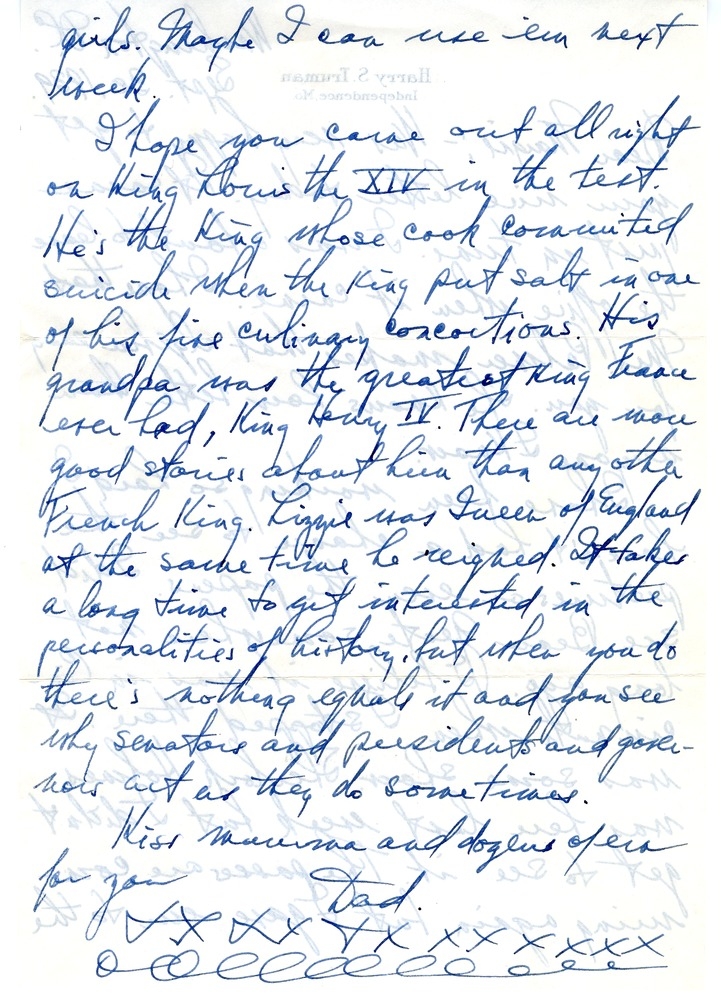 girls. Maybe I can use 'em next
week.
Harry S. Truman
Independence, Mo.
I hope you came out all right
on King Louis the XIV in the test.
He's the King whose cook committed
suicide when the King put salt in one
of his fine culinary concoctions. His
grandpa was the greatest King France
ever had, King Henry IV. There are more
good stories about him than any other
French King. Lizzie was Queen of England
at the same time he reigned. It takes
a long time to get interested in the
personalities of history, but when you do
there's nothing equals it and you see
why senators and presidents and gover-
nors act as they do sometimes.
Kiss mamma and dozens of em
for you Dad.
XX XX XX XX X XXXX